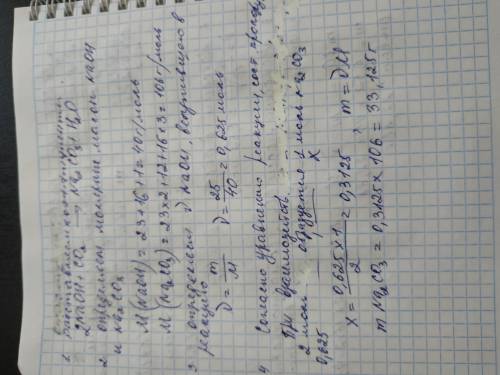 1. расставляем коэффициенты
2NaOH + CO2 → Na2CO3 + H2O
2 определяем молярные массы NaOH
и Na2CO3
M (NaOH) = 23+16+1=40 г/моль
M (Na2CO3) = 23×2+12+16×3=106 г/моль
3 определяем ν NaOH, вступившего в
реакцию
ν = m/M ν = 25/40 = 0,625 моль
4 Согласно уравнению реакции, сост. пропорц
При взаимодейств.
2 моль — образуется 1 моль Na2CO3
0,625 X
X = 0,625×1/2 = 0,3125 , m = νM
m Na2CO3 = 0,3125×106 = 33,125г